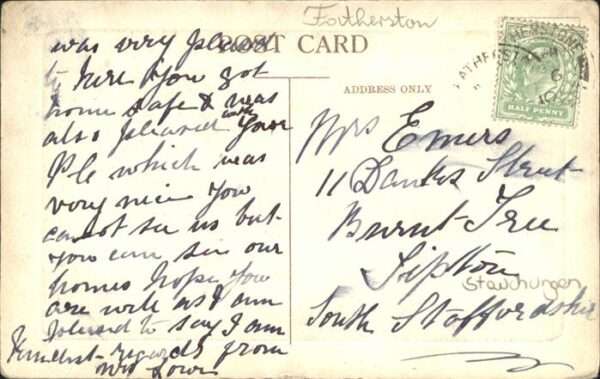 Fotherston
POST CARD
ADDRESS ONLY
ATHERSTONE
HALF PENNY
was very pleased
to here you got
home safe & was
also pleased with your
P/c which was
very nice you
cannot see us but
you can see our
homes hope you
are well as I am
pleased to say I am
Kindest regards from
Mrs
Mrs Emers
11 Danks Street
Burnt Tree
Tipton
South Staffordshire